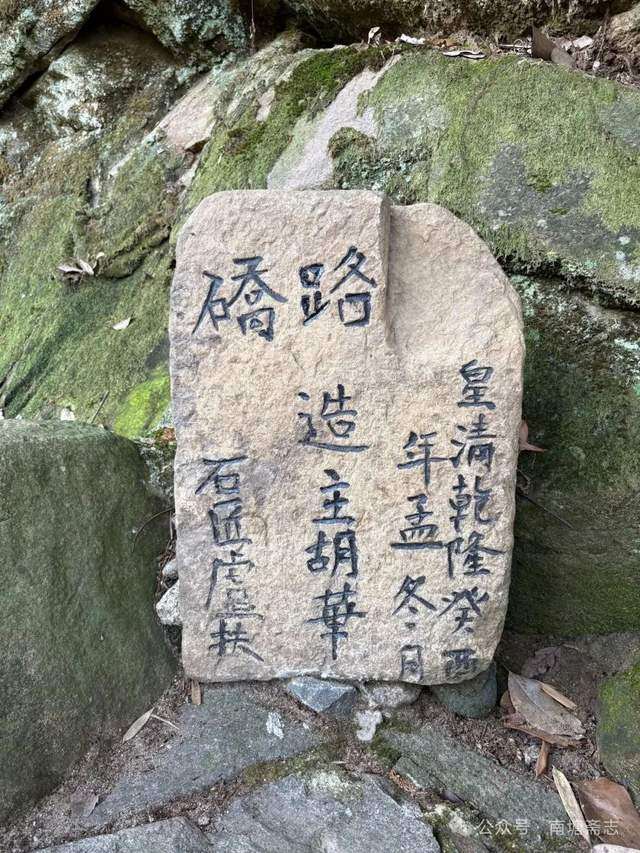 皇清乾隆癸酉
年孟冬月
路礄
造主胡華
石匠盧扶
公众号 · 南塘斋志